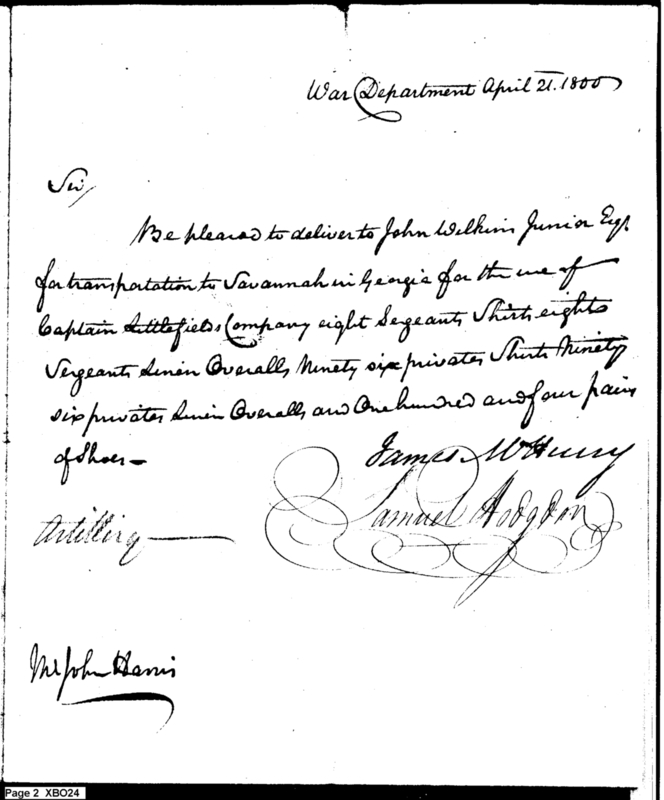 War Department April 21. 1800
Sir,
Be pleased to deliver to John Wilkins Junior Esqr
for transportation to Savannah in Georgia for the use of
Captain Littlefields Company eight Sergeants Shirts eight
Sergeants Linen Overalls Ninety six privates Shirts Ninety
six privates Linen Overalls and One hundred and four pairs
of Shoes —
James McHenry
Samuel Hodgdon
Artillery —
Mr John Harris
Page 2 XBO24